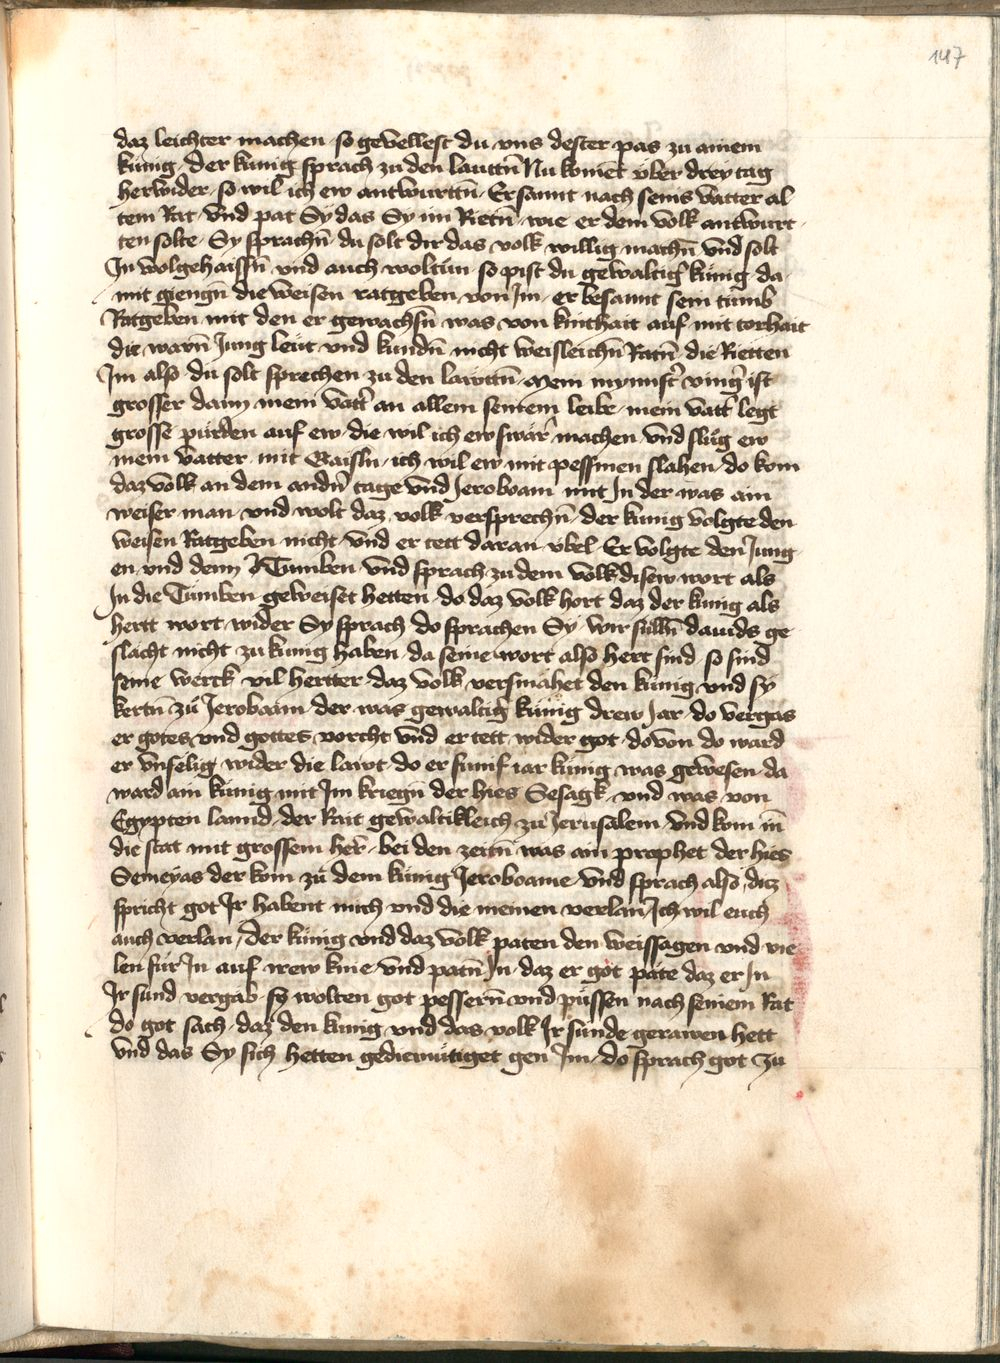 147
daz leichter machen so gevellest du vns dester pas zu ainem
künig · der künig sprach zu den lauttn̄ Nu komēt v̈ber drey tag
herwider · so wil ich ew antwurttn̄ · Er sannt nach seins vatter al
tem Rat · vnd pat Sy das Sy im Rietn̄ · wie er dem volk antwurt
ten solte · Sy sprachn̄ du solt dir das volk willig machn̄ vnd solt
In wolgehaissn̄ vnd auch woltün · so pist du gewaltiḡ künig · da
mit giengn̄ die weisen ratgeben von Im · er besannt sein tumb
Ratgeben mit den er gewachsn̄ was von kinthait auf mit torhait
die warn̄ Jung leüt vnd kundn̄ nicht weisleichn̄ Ratn̄ die Rietten
Im also du solt sprechen zu den lawttn̄ · Mein mynnst̄ vinḡ ist
grosser dann mein vatt̄ an allem seinem leibe · mein vatt̄ legt
grosse pürden auf ew · die wil ich ew swär̄ machen · vnd slüg ew
mein vatter mit Gaisln · ich wil ew mit pessmen slahen · do kom
daz volk an dem andn̄ tage vnd Jeroboam mit In der was ain
weiser man · vnd wolt daz volk versprechn̄ · der künig volgte den
weisen Ratgeben nicht · vnd er tett daran vbel · Er volgte den Jung
en vnd denn Tumben vnd sprach zu dem volk disew wort als
In die Tumben geweiset hetten · do daz volk hort daz der künig als
hertt wort wider Sy sprach do sprachen Sy · wir sülln̄ dauids ge
slächt nicht zu künig haben · da seine wort also hert sind · so sind
seine werck vil hertter · daz volk versmähet den künig vnd sy
kertn̄ zü Jeroboam · der was gewaltig künig drew Jar · do vergas
er gotes vnd gottes vorcht vnd er tett wider got · dovon do ward
er vnselig wider die lawt · do er fumf iar künig was gewesen · da
ward ain künig mit Im kriegn̄ der hies Sesagk · vnd was von
Egypten lannd · der Rait gewaltikleich zü Jerusalem vnd kom in
die stat mit grossem her̄ · bei den zeitn̄ was ain prophet der hies
Semeyas der kom zü dem künig Jeroboame vnd sprach also · diz
spricht got Ir habent mich vnd die meinen verlan / Ich wil euch
auch verlan / der künig vnd daz volk paten den weissagen vnd vie
len für In auf irew knie · vnd patn̄ In · daz er got päte daz er In
Ir sund vergäb · sy wolten got pessern̄ vnd püssen nach seinem Rat
do got sach · daz den künig vnd das volk Ir sunde gerawen hett
vnd das Sy sich hetten gediemütiget gen Im · do sprach got zu